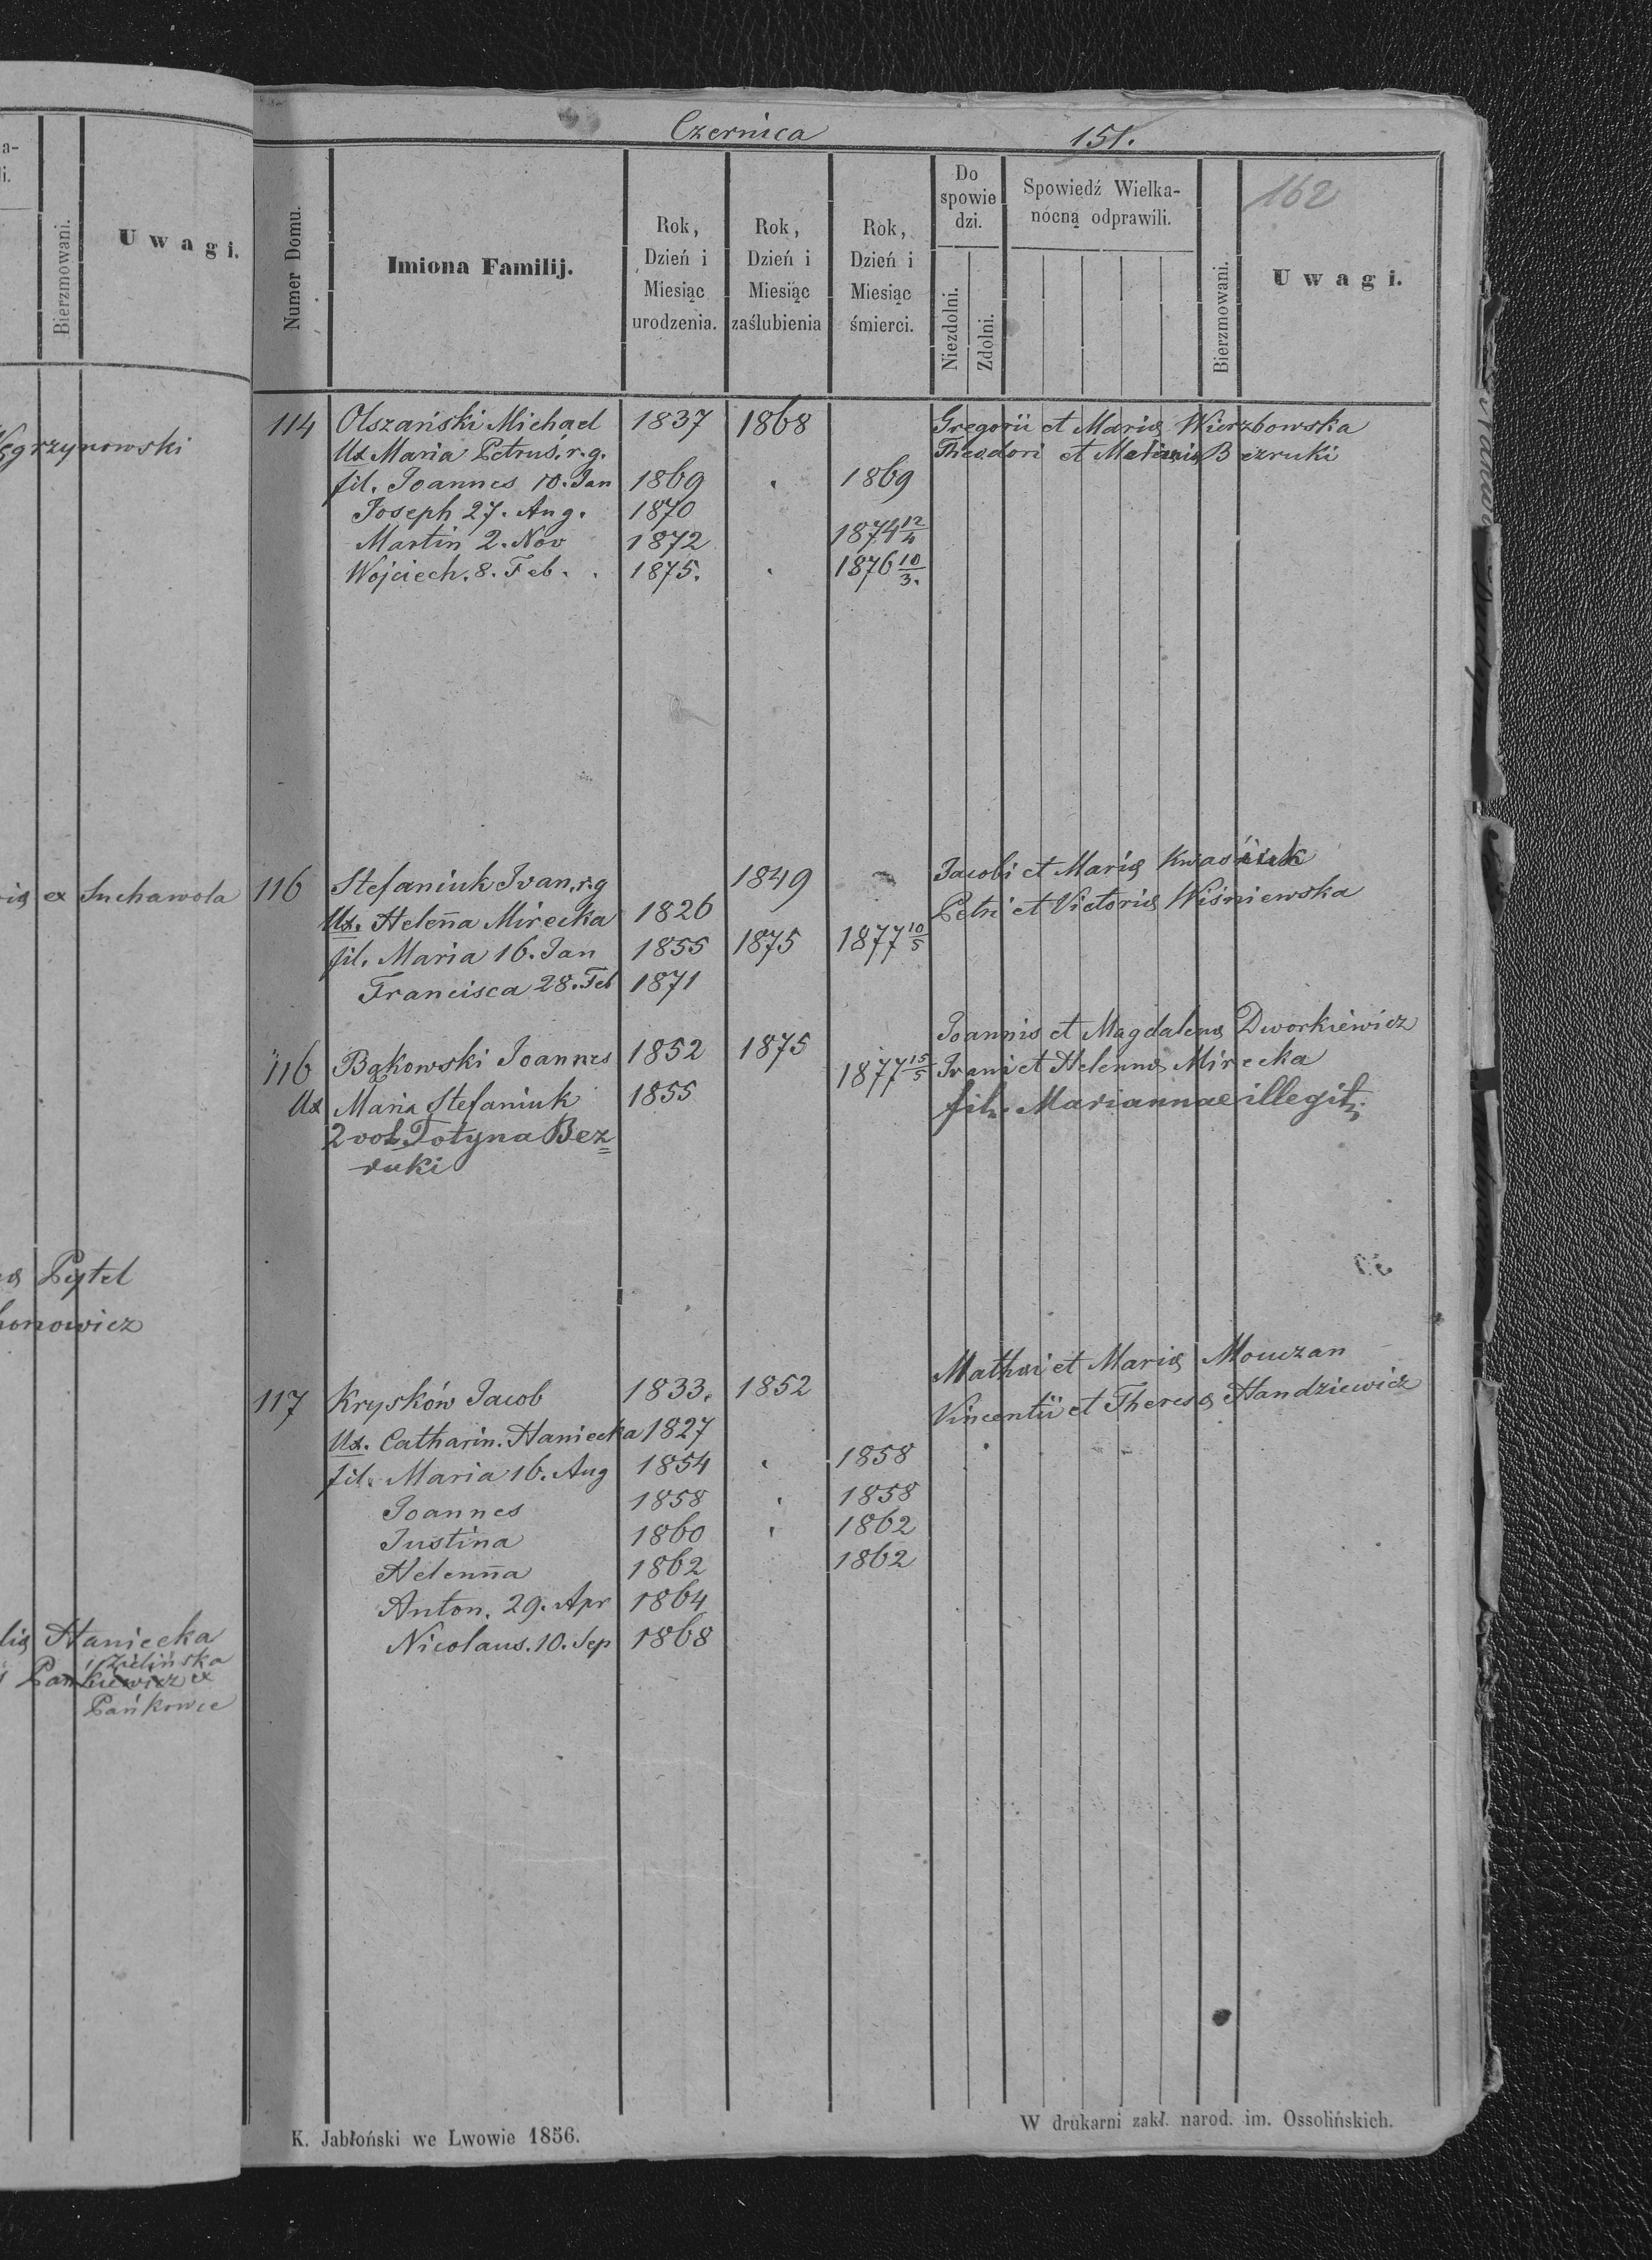 a-
i.
Bierzmowani.
Uwagi.
Węgrzynowski
ex Suchawola
Pytel
honowicz
Haniecka
Zielińska
Pańkiewicz ex
Pańkowce
Czernica 151.
162
Numer Domu.
Imiona Familij.
Rok, Dzień i Miesiąc urodzenia.
Rok, Dzień i Miesiąc zaślubienia
Rok, Dzień i Miesiąc śmierci.
Do spowie dzi.
Niezdolni.
Zdolni.
Spowiedź Wielka-
nócną odprawili.
Bierzmowani.
Uwagi.
114 Olszański Michael 1837 1868 Gregorii et Mariæ Wierzbowska
Ux Maria Petruś, r. g. Theodori et Bezruki
fil. Joannes 10. Jan 1869 . 1869
Joseph 27. Aug. 1870
Martin 2. Nov 1872 1874 12/4
Wojciech. 8. Feb. . 1875. . 1876 10/3.
116 Stefaniuk Ivan, r. g 1849 Jacobi et Mariæ Kwaśniuk
Ux. Heleña Mirecka 1826 Petri et Victoriæ Wiśniewska
fil. Maria 16. Jan 1855 1875 1877 10/5
Francisca 28. Feb 1871
116 Bąkowski Joannes 1852 1875 Joannis et Magdalenæ Dworkiewicz
1877 15/5 Ivani et Helennæ Mirecka
Ux Maria Stefaniuk 1855 fil. Mariannae illegit.
2 vot. Fotyna Bez=
ruki
117 Kryśków Jacob 1833. 1852 Mathæi et Mariæ Mouczan
Ux. Catharin. Haniecka 1827 Vincentii et Theresæ Handziewicz
fil. Maria 16. Aug 1854 . 1858
Joannes 1858 . 1858
Justina 1860 . 1862
Helenña 1862 1862
Anton. 29. Apr 1864
Nicolaus. 10. Sep 1868
K. Jabłoński we Lwowie 1856.
W drukarni zakł. narod. im. Ossolińskich.